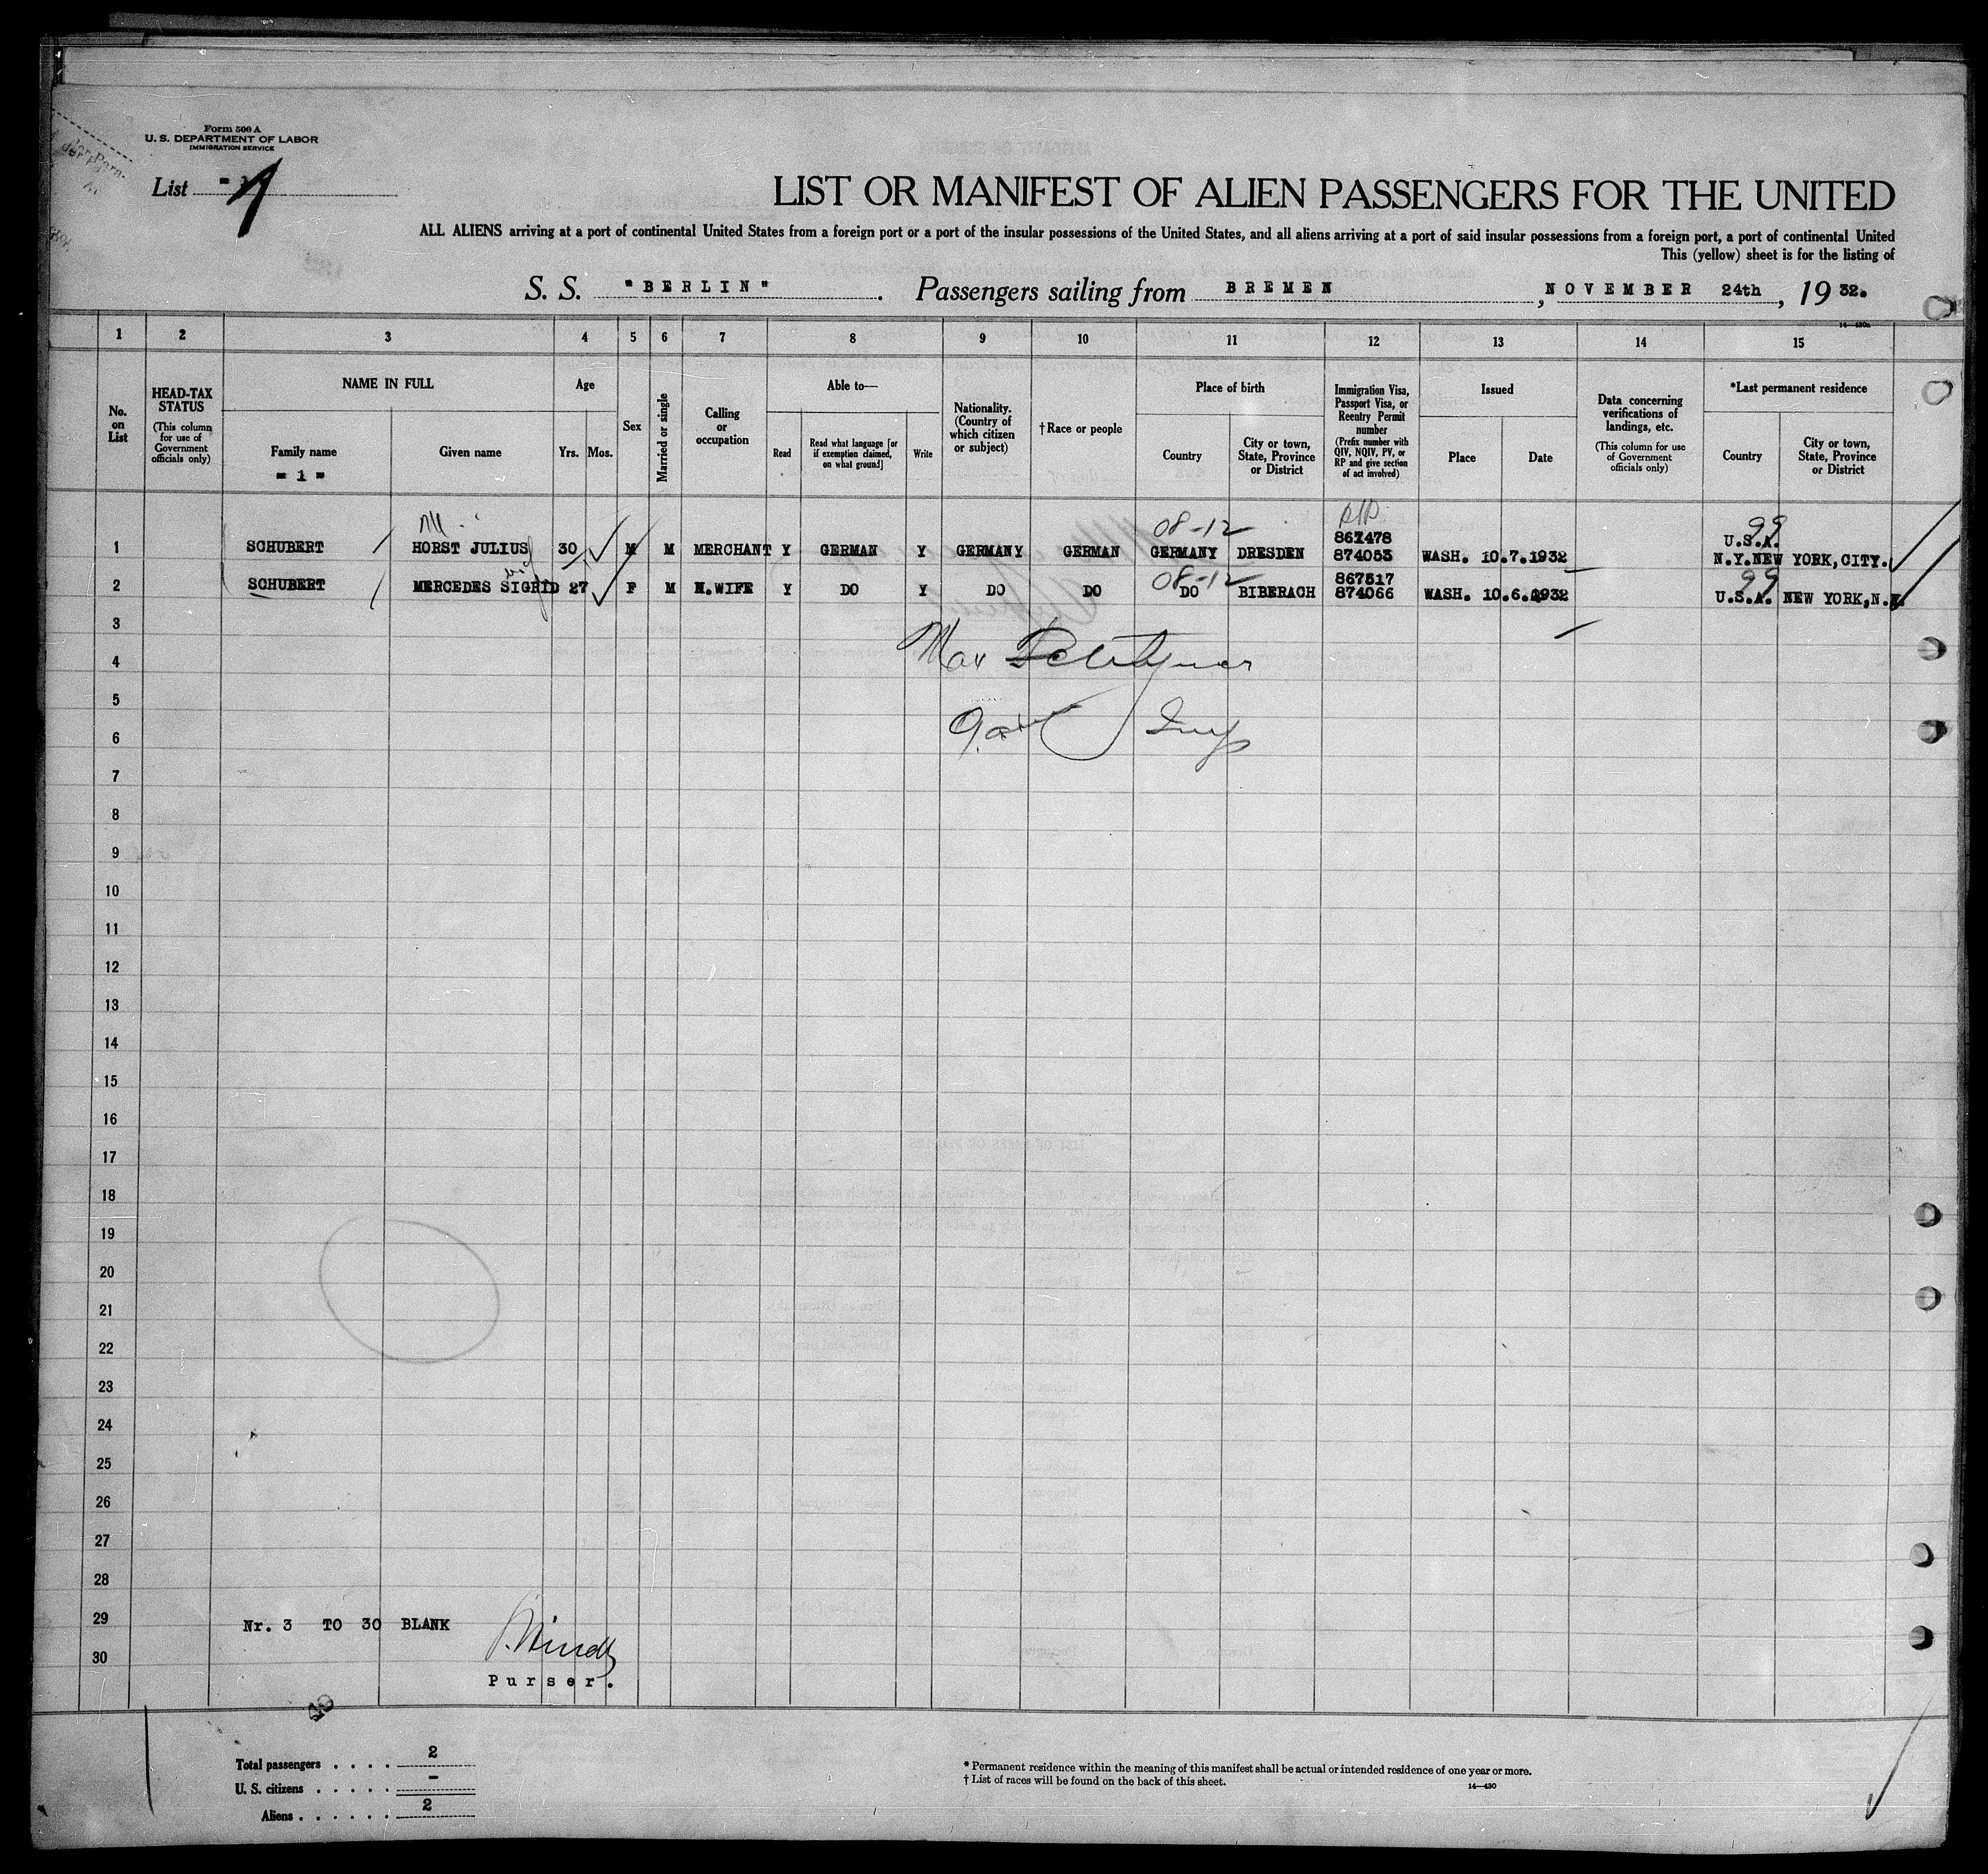 Form 500 A
U. S. DEPARTMENT OF LABOR
IMMIGRATION SERVICE
List
LIST OR MANIFEST OF ALIEN PASSENGERS FOR THE UNITED
ALL ALIENS arriving at a port of continental United States from a foreign port or a port of the insular possessions of the United States, and all aliens arriving at a port of said insular possessions from a foreign port, a port of continental United
This (yellow) sheet is for the listing of
S. S. "BERLIN". Passengers sailing from BREMEN, NOVEMBER 24th, 19 32.
14—430a
1 2 3 4 5 6 7 8 9 10 11 12 13 14 15
No. on List
HEAD-TAX STATUS
(This column for use of Government officials only)
NAME IN FULL
Family name
- 1 -
Given name
Age
Yrs. Mos.
Sex
Married or single
Calling or occupation
Able to—
Read
Read what language [or if exemption claimed, on what ground]
Write
Nationality. (Country of which citizen or subject)
† Race or people
Place of birth
Country
City or town, State, Province or District
Immigration Visa, Passport Visa, or Reentry Permit number
(Prefix number with QIV, NQIV, PV, or RP and give section of act involved)
Issued
Place
Date
Data concerning verifications of landings, etc.
(This column for use of Government officials only)
*Last permanent residence
Country
City or town, State, Province or District
08-12 99
861478 U.S.A.
1 SCHUBERT HORST JULIUS 30 M M MERCHANT Y GERMAN Y GERMANY GERMAN GERMANY DRESDEN 874053 WASH. 10.7.1932 N.Y. NEW YORK, CITY.
08-12 867517 99
2 SCHUBERT MERCEDES SIGRID 27 F M H.WIFE Y DO Y DO DO DO BIBERACH 874066 WASH. 10.6.1932 U.S.A. NEW YORK, N.Y.
3
4 Max
5
6
7
8
9
10
11
12
13
14
15
16
17
18
19
20
21
22
23
24
25
26
27
28
29 Nr. 3 TO 30 BLANK
30
Purser.
Total passengers . . . . 2
U. S. citizens . . . . . -
Aliens . . . . . . 2
* Permanent residence within the meaning of this manifest shall be actual or intended residence of one year or more.
† List of races will be found on the back of this sheet. 14—430